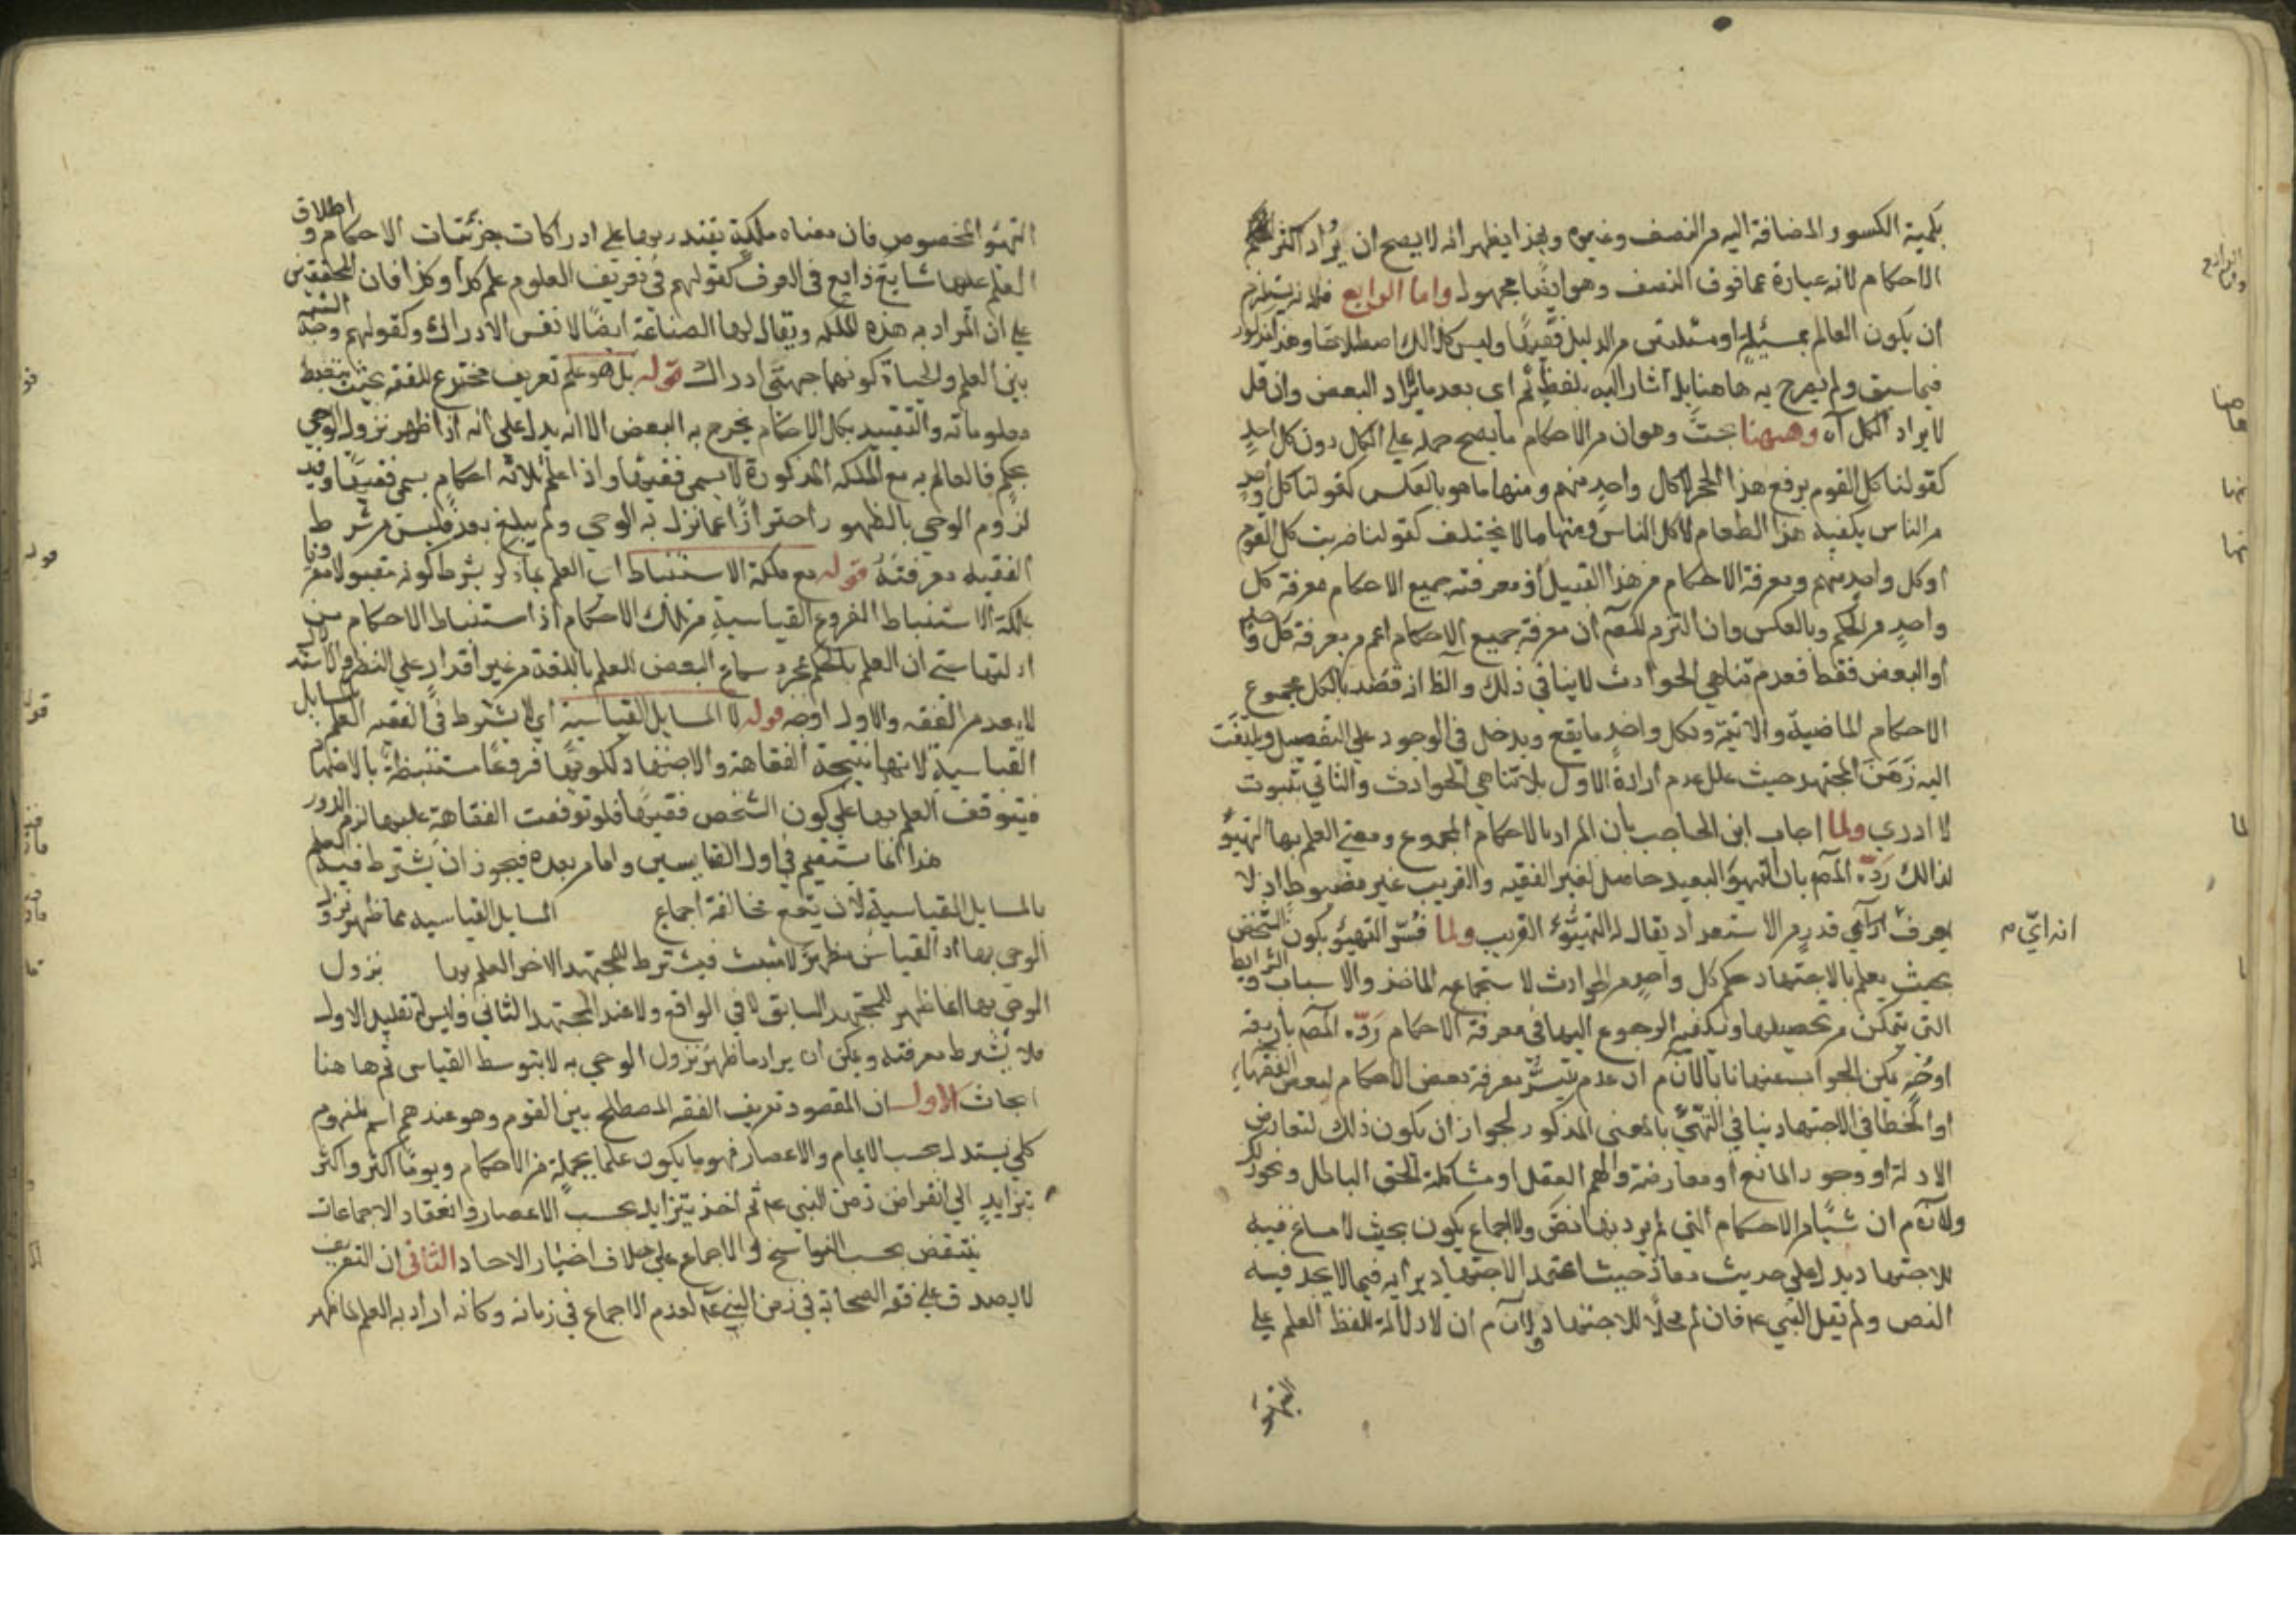 بكمية الكسور المضافة اليه من النصف وغيره وبهذا يظهر انه لا يصح ان يراد اكثر
الاحكام لانه عبارة عما فوق النصف وهو ايضا مجهول واما الرابع فلانه يستلزم
ان يكون العالم بمسئلة او مسئلتين من الدليل فقيها وليس كذلك اصطلاحا وهذا مذكور
فيما سبق ولم يصرح به هاهنا بل اشار اليه بلفظ ثم اى بعد ما لا يراد البعض وان قل
لا يراد الكل آه وههنا بحث وهو ان من الاحكام ما يصح حمله على الكل دون كل احد
كقولنا كل القوم يرفع هذا الحجر لا كل واحد منهم ومنها ما هو بالعكس كقولنا كل واحد
من الناس يكفيه هذا الطعام لا كل الناس ومنها ما لا يختلف كقولنا ضربت كل القوم
او كل واحد منهم ومعرفة الاحكام من هذا القبيل اذ معرفته جميع الاحكام معرفة كل
واحد من الحكم وبالعكس وان التزم المصم ان معرفة جميع الاحكام اعم من معرفة كل واحد
او البعض فقط فعدم تناهي الحوادث لا ينافي ذلك والظ انه قصد بالكل مجموع
الاحكام الماضية والآتية وبكل واحد ما يقع ويدخل في الوجود على التفصيل ويلتفت
اليه ذهن المجتهد حيث علل عدم ارادة الاول بلا تناهي الحوادث والثاني بثبوت
لا ادري ولما اجاب ابن الحاجب بان المراد بالاحكام المجموع ومعنى العلم بها التهيؤ
لذالك رده المصم بان التهيؤ البعيد حاصل لغير الفقيه والقريب غير مضبوط اذ لا
يعرف اي قدر من الاستعداد يقال له التهيؤ القريب ولما فسر التهيؤ بكون الشخص
انه اي م
بحيث يعلم بالاجتهاد حكم كل واحد من الحوادث لاستجماعه الماخذ والاسباب والشرايط
التى يتمكن من تحصيلها ويكفيه الرجوع اليها في معرفة الاحكام رده المصم باربعة
اوجه يمكن الجواب عنها نا بالا نم ان عدم تيسر معرفة بعض الاحكام لبعض الفقهاء
او الخطا في الاجتهاد ينافي التهيئ بالمعنى المذكور لجواز ان يكون ذلك لتعارض
الادلة او وجود المانع او معارضة الوهم العقل او مشاكلة الحق الباطل ونحو ذلك
ولا نم ان شيئا من الاحكام التي لم يرد بها نص ولا اجماع يكون بحيث لا مساغ فيه
للاجتهاد يدل على حديث معاذ حيث اعتمد الاجتهاد برايه فيما لا يجد فيه
النص ولم يقل النبي عم فان لم محلا للاجتهاد ولا نم ان لا دلالة للفظ العلم على
التهيؤ
التهيؤ المخصوص فان معناه ملكة يقتدر بها على ادراكات جزئيات الاحكام و اطلاق
العلم عليها شايع ذايع في العرف كقولهم في تعريف العلوم علم كذا وكذا فان المحققين
على ان المراد به هذه الملكة ويقال لها الصناعة ايضا لا نفس الادراك وكقولهم وجه الشبه
بين العلم والحياة كونهما جهتى ادراك قوله بل هو علم تعريف مخترع للفقه بحيث ينضبط
معلوماته والتقييد بكل الاحكام يخرج به البعض الا انه يدل على انه اذا ظهر نزول الوحي
بحكم فالعالم به مع الملكة المذكورة لا يسمى فقيها واذا علم ثلاثة احكام يسمى فقيها وقيد
لزوم الوحي بالظهور احترازا عما نزل به الوحي ولم يبلغ بعد فليس من شرط
الفقيه معرفته قوله مع ملكة الاستنباط اى العلم بما ذكر بشرط كونه مقبولا مقرونا
بملكة الاستنباط الفروع القياسية من تلك الاحكام اذ استنباط الاحكام من
ادلتها حتى ان العلم بالحكم بمجرد سماع البعض للعلم باللغة من غير اقتدار على النظر والاستدلال
لا يعد من الفقه والاول اوجه قوله لا المسايل القياسية اى لا يشترط في الفقه العلم بالمسايل
القياسية لانها نتيجة الفقاهة والاجتهاد لكونها فروعا مستنبطة بالاجتهاد
فيتوقف العلم بها على كون الشخص فقيها فلو توقفت الفقاهة عليها لزم الدور
هذا انما يستقيم في اول القايسين واما من بعده فيجوز ان يشترط فيه العلم
بالمسايل القياسية لان يقع مخالفة اجماع المسايل القياسية مما ظهر نزول
الوحى بها اذ القياس مظهر لا مثبت فيشترط للمجتهد الاخر العلم بها نزول
الوحى بها انما ظهر للمجتهد السابق لا في الواقع ولا عند المجتهد الثاني وليس له تقليد الاول
فلا يشترط معرفته ويمكن ان يراد ما ظهر نزول الوحي به لا بتوسط القياس ثم هاهنا
ابحاث الاول ان المقصود تعريف الفقه المصطلح بين القوم وهو عندهم اسم لمفهوم
كلي يتبدل بحسب الايام والاعصار فيوما يكون علما بجملة من الاحكام ويوما اكثر واكثر
يتزايد الى انقراض زمن النبي عم ثم اخذ يتزايد بحسب الاعصار وانعقاد الاجماعات
ينتقض بحسب النواسخ او الاجماع على خلاف اخبار الاحاد الثاني ان التعريف
لا يصدق على فقه الصحابة في زمن النبي عم لعدم الاجماع في زمانه وكانه اراد به العلم لما ظهر